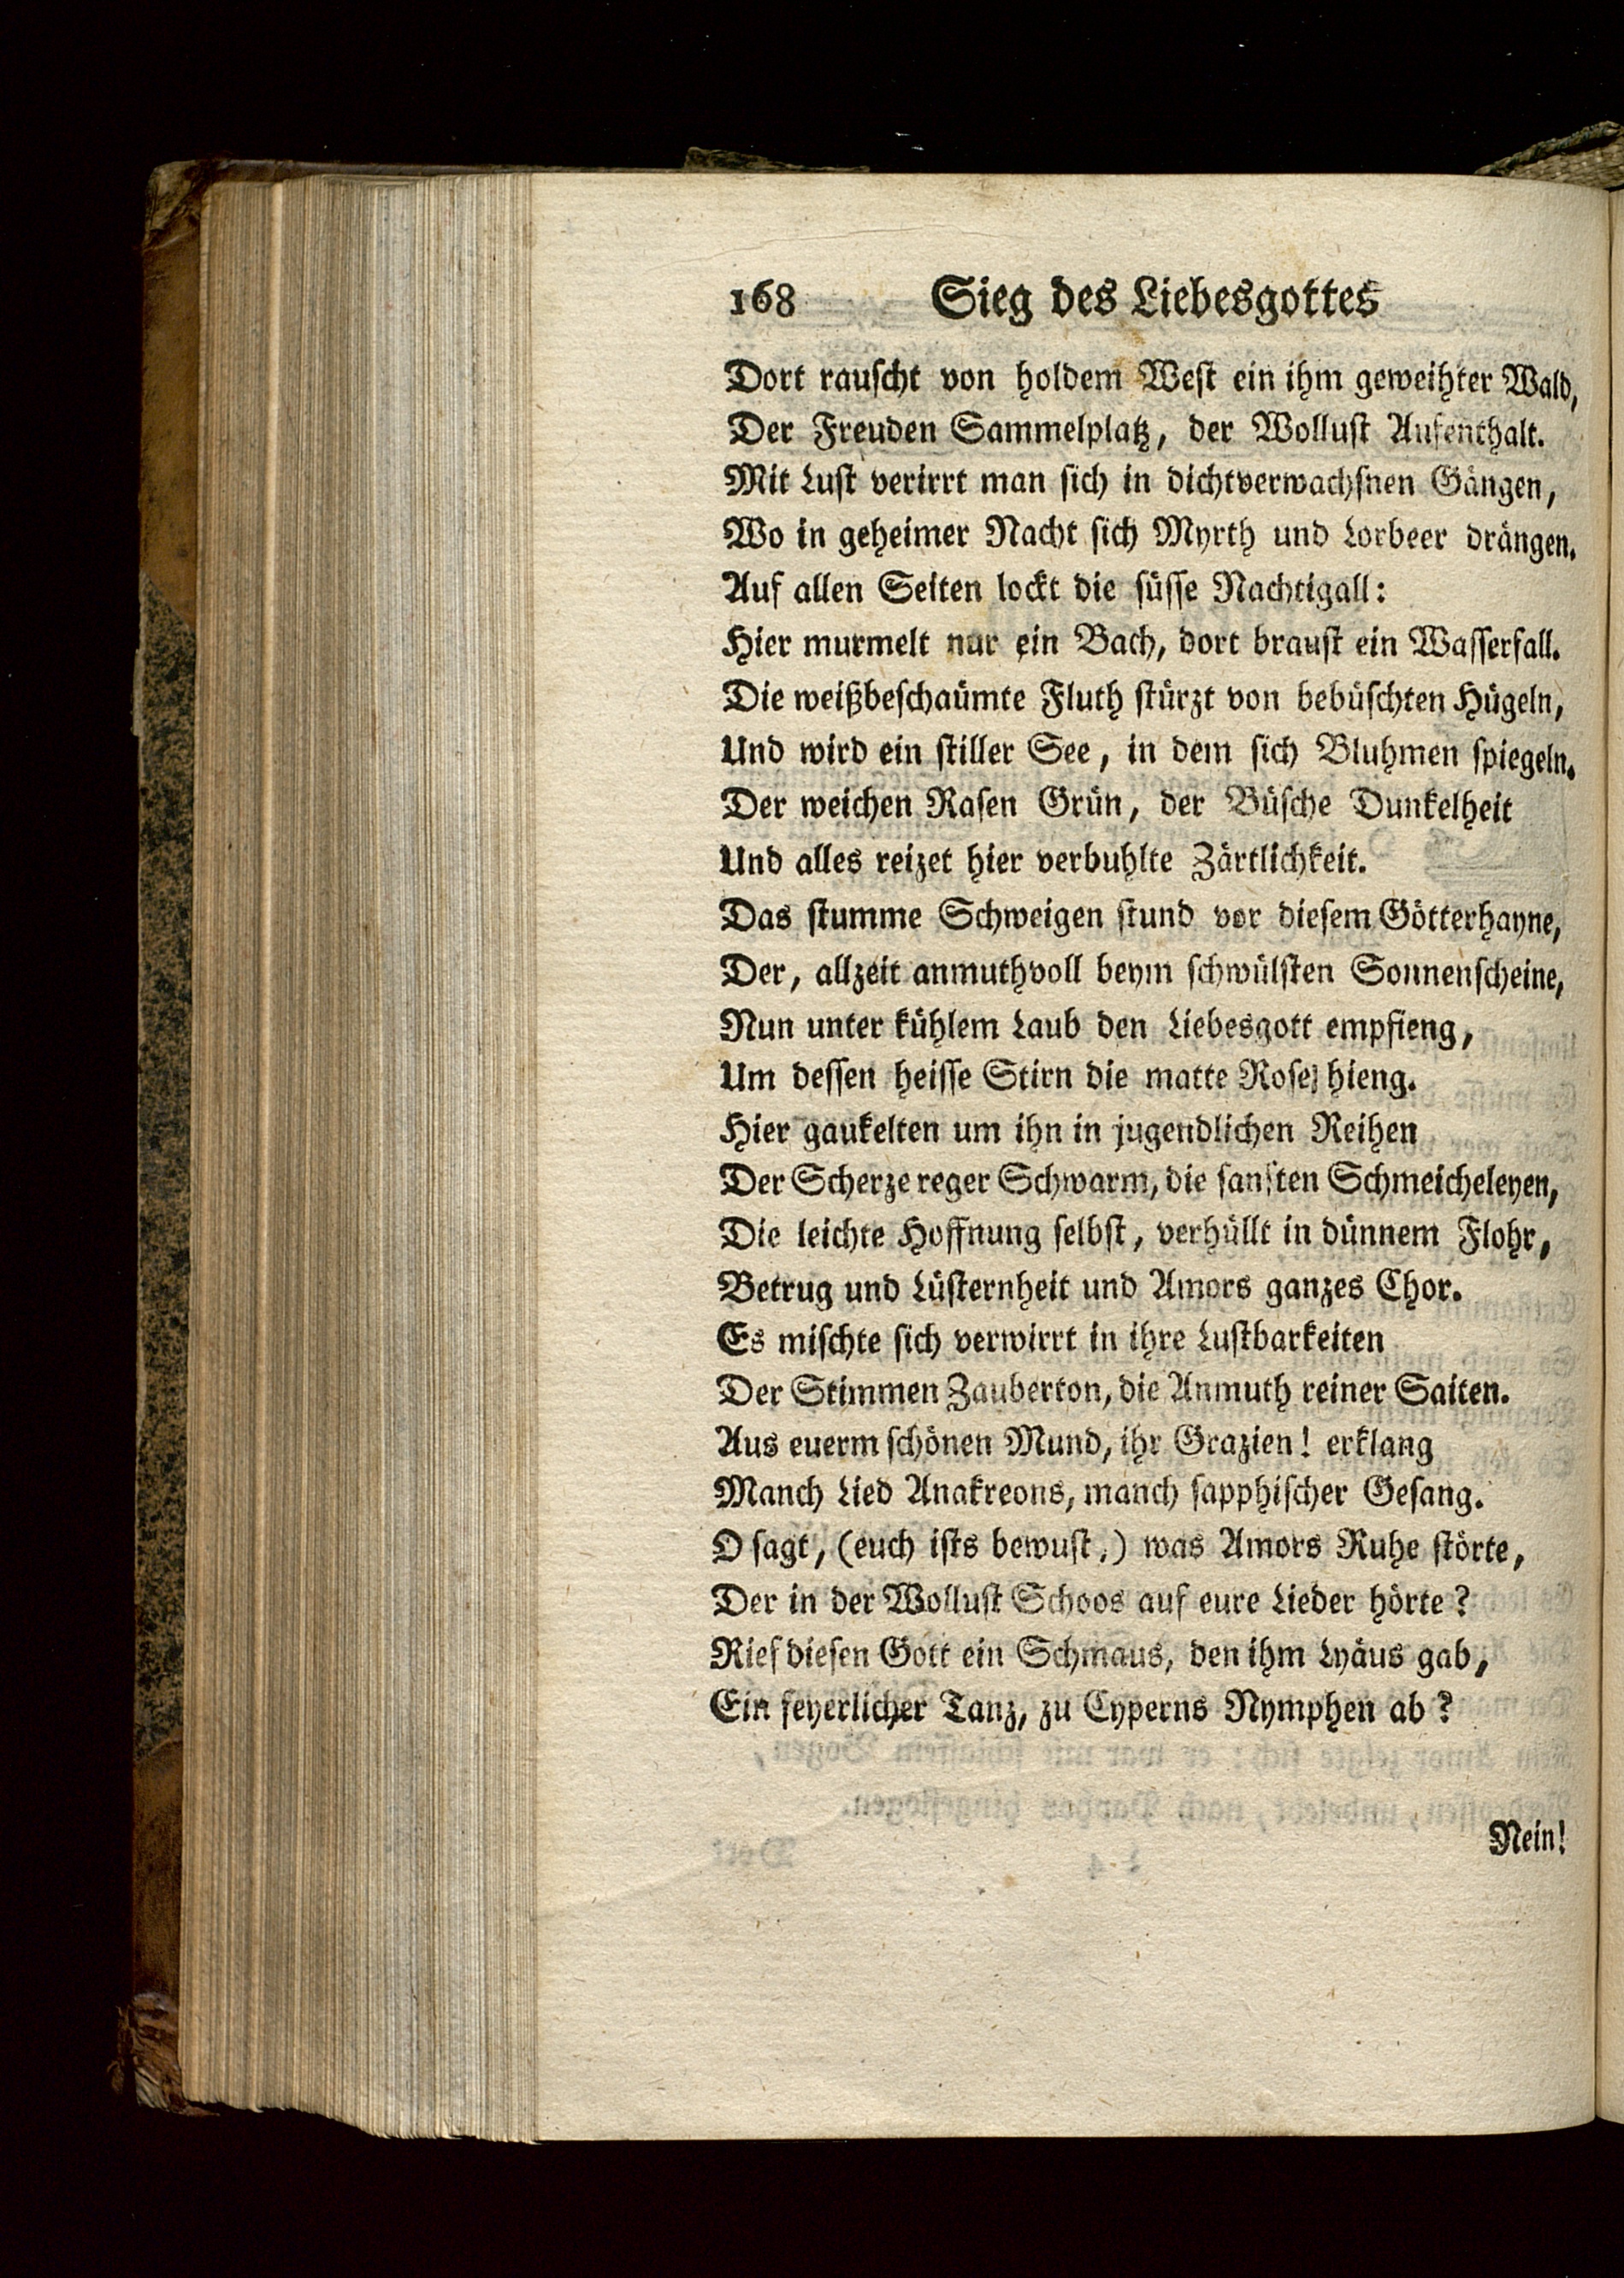 168 Sieg des Liebesgottes
Dort rauscht von holdem West ein ihm geweihter Wald,
Der Freuden Sammelplatz, der Wollust Aufenthalt.
Mit Lust verirrt man sich in dichtverwachsnen Gängen,
Wo in geheimer Nacht sich Myrth und Lorbeer drängen.
Auf allen Seiten lockt die süsse Nachtigall:
Hier murmelt nur ein Bach, dort braust ein Wasserfall.
Die weißbeschaümte Fluth stürzt von bebüschten Hügeln,
Und wird ein stiller See, in dem sich Bluhmen spiegeln.
Der weichen Rasen Grün, der Büsche Dunkelheit
Und alles reizet hier verbuhlte Zärtlichkeit.
Das stumme Schweigen stund vor diesem Götterhayne,
Der, allzeit anmuthvoll beym schwülsten Sonnenscheine,
Nun unter kühlem Laub den Liebesgott empfieng,
Um dessen heisse Stirn die matte Rose hieng.
Hier gaukelten um ihn in jugendlichen Reihen
Der Scherze reger Schwarm, die sanften Schmeicheleyen,
Die leichte Hoffnung selbst, verhüllt in dünnem Flohr,
Betrug und Lüsternheit und Amors ganzes Chor.
Es mischte sich verwirrt in ihre Lustbarkeiten
Der Stimmen Zauberton, die Anmuth reiner Saiten.
Aus euerm schönen Mund, ihr Grazien! erklang
Manch Lied Anakreons, manch sapphischer Gesang.
O sagt, (euch ists bewust,) was Amors Ruhe störte,
Der in der Wollust Schoos auf eure Lieder hörte?
Rief diesen Gott ein Schmaus, den ihm Lyäus gab,
Ein feyerlicher Tanz, zu Cyperns Nymphen ab?
Nein!